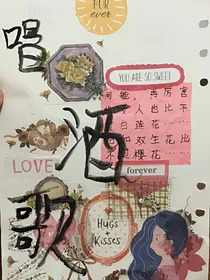 FOR
ever
唱
酒
歌
YOU ARE SO SWEET
可能，再厉害
人也比不
白莲花
如双生花比
不见樱花……
LOVE
forever
HUGS
+
KISSES